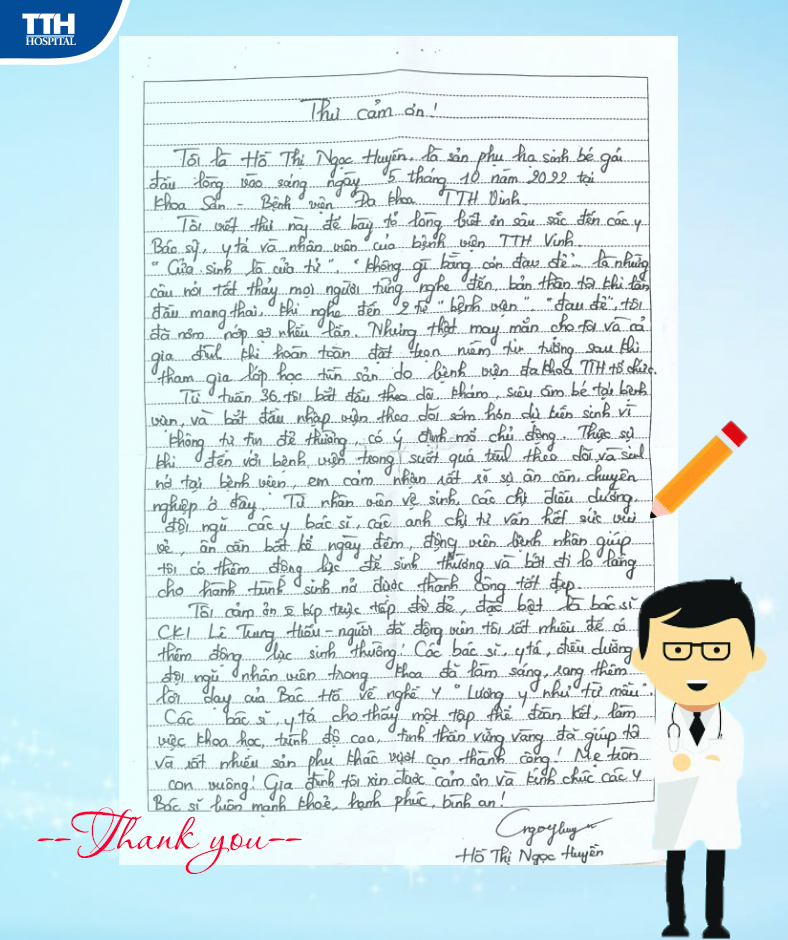 TTH
HOSPITAL
Thư cảm ơn!
Tôi là Hồ Thị Ngọc Huyền, là sản phụ hạ sinh bé gái
đầu lòng vào sáng ngày 5 tháng 10 năm 2022 tại
Khoa Sản - Bệnh viện Đa khoa TTH Vinh.
Tôi viết thư này để bày tỏ lòng biết ơn sâu sắc đến các y
Bác sỹ, y tá và nhân viên của bệnh viện TTH Vinh.
"Cửa sinh là cửa tử", "không gì bằng cơn đau đẻ"... là những
câu nói tất thảy mọi người từng nghe đến, bản thân tôi khi lần
đầu mang thai, khi nghe đến 2 từ "bệnh viện", "đau đẻ", tôi
đã nơm nớp sợ nhiều lần. Nhưng thật may mắn cho tôi và cả
gia đình khi hoàn toàn đặt trọn niềm tin tưởng sau khi
tham gia lớp học tiền sản do bệnh viện đa khoa TTH tổ chức.
Từ tuần 36, tôi bắt đầu theo dõi khám, siêu âm bé tại bệnh
viện, và bắt đầu nhập viện theo dõi sớm hơn dự kiến sinh vì
không tự tin đẻ thường, có ý định mổ chủ động. Thực sự
khi đến với bệnh viện trong suốt quá trình theo dõi và sinh
nở tại bệnh viện, em cảm nhận rất rõ sự ân cần, chuyên
nghiệp ở đây. Từ nhân viên vệ sinh, các chị điều dưỡng,
đội ngũ các y bác sĩ, các anh chị tư vấn hết sức vui
vẻ, ân cần bất kể ngày đêm, động viên bệnh nhân giúp
tôi có thêm động lực để sinh thường và bớt đi lo lắng
cho hành trình sinh nở được thành công tốt đẹp.
Tôi cảm ơn ê kíp trực tiếp đỡ đẻ, đặc biệt là bác sĩ
CKI Lê Trung Hiếu - người đã động viên tôi rất nhiều để có
thêm động lực sinh thường! Các bác sĩ, y tá, điều dưỡng
đội ngũ nhân viên trong khoa đã làm sáng rạng thêm
lời dạy của Bác Hồ về nghề Y "Lương y như từ mẫu".
Các bác sĩ, y tá cho thấy một tập thể đoàn kết, làm
việc khoa học, trình độ cao, tinh thần vững vàng đã giúp tôi
và rất nhiều sản phụ khác vượt cạn thành công! Mẹ tròn
con vuông! Gia đình tôi xin được cảm ơn và kính chúc các Y
Bác sĩ luôn mạnh khoẻ, hạnh phúc, bình an!
Hồ Thị Ngọc Huyền
--Thank you--